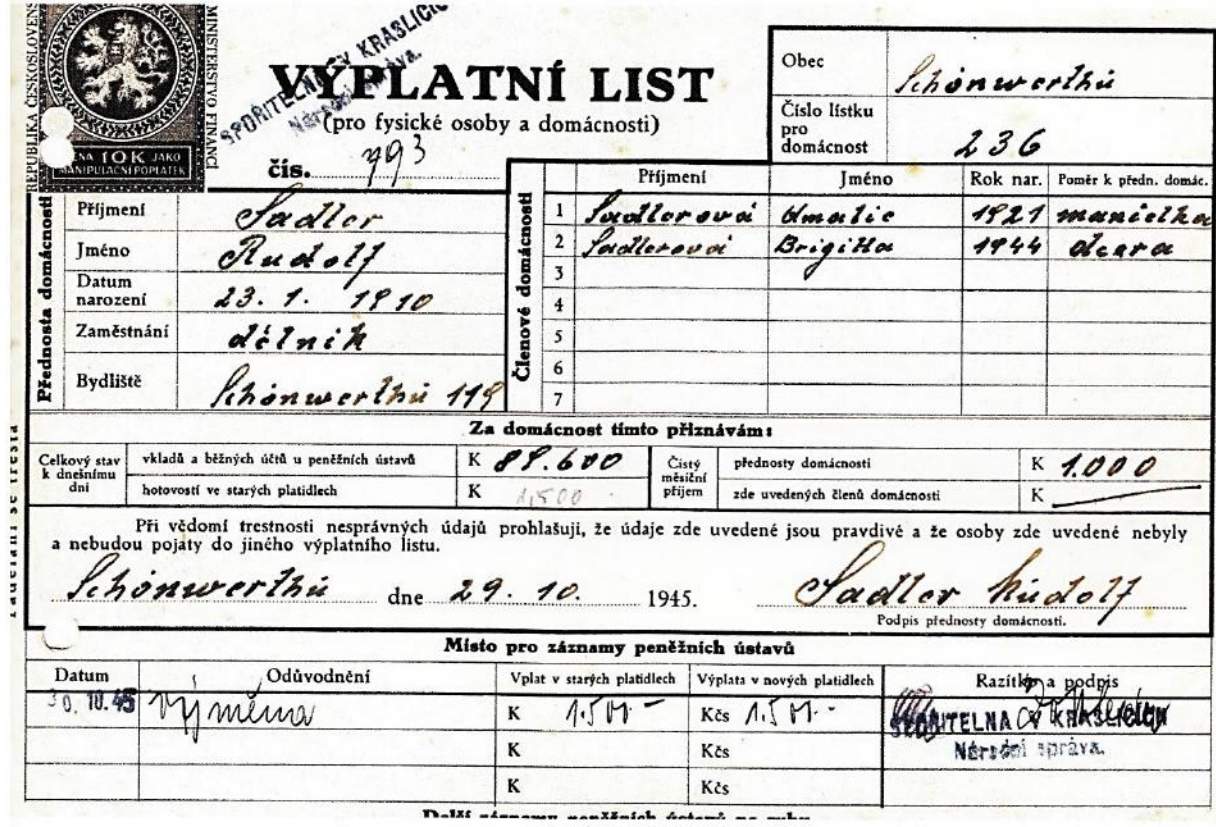 REPUBLIKA ČESKOSLOVENS
MINISTERSTVO FINANCÍ
10K JAKO
MANIPULAČNÍ POPLATEK
SPOŘITELNA V KRASLICÍCH
Národní správa.
VÝPLATNÍ LIST
(pro fysické osoby a domácnosti)
čís. 793
Obec Schönwerthů
Číslo lístku pro domácnost 236
Přednosta domácnosti
Příjmení Sadler
Jméno Rudolf
Datum narození 23. 1. 1910
Zaměstnání dělník
Bydliště Schönwerthů 119
Členové domácnosti
Příjmení Jméno Rok nar. Poměr k předn. domác.
1 Sadlerová Amalie 1921 manželka
2 Sadlerová Brigitta 1944 dcera
3
4
5
6
7
Za domácnost tímto přiznávám:
Celkový stav k dnešnímu dni
vkladů a běžných účtů u peněžních ústavů K 89.600
hotovostí ve starých platidlech K 1,500
Čistý měsíční příjem
přednosty domácnosti K 1.000
zde uvedených členů domácnosti K
Při vědomí trestnosti nesprávných údajů prohlašuji, že údaje zde uvedené jsou pravdivé a že osoby zde uvedené nebyly
a nebudou pojaty do jiného výplatního listu.
Schönwerthů dne 29. 10. 1945. Sadler Rudolf
Podpis přednosty domácnosti.
Místo pro záznamy peněžních ústavů
Datum Odůvodnění Vplat v starých platidlech Výplata v nových platidlech Razítko a podpis
30. 10. 45 Výměna K 1.500.- Kčs 1.500.-
SPOŘITELNA V KRASLICÍCH
Národní správa.
K Kčs
K Kčs